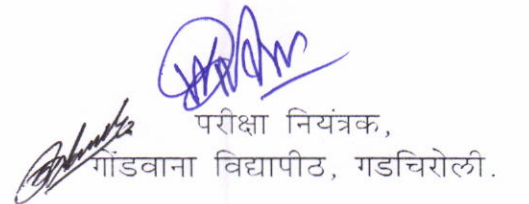 परीक्षा नियंत्रक,
गोंडवाना विद्यापीठ, गडचिरोली.